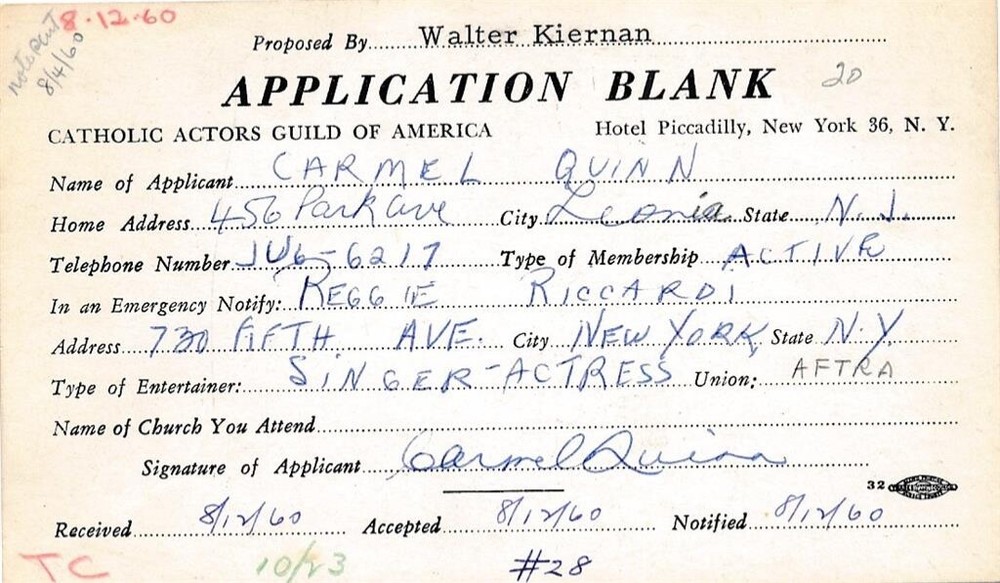 8-12-60
note sent
8/4/60
Proposed By Walter Kiernan
APPLICATION BLANK 20
CATHOLIC ACTORS GUILD OF AMERICA Hotel Piccadilly, New York 36, N. Y.
Name of Applicant CARMEL QUINN
Home Address 456 Park ave City Leonia State N.J.
Telephone Number JU6-6217 Type of Membership ACTIVE
In an Emergency Notify: REGGIE RICCARDI
Address 730 FIFTH. AVE. City NEW YORK, State N.Y.
Type of Entertainer: SINGER-ACTRESS Union: AFTRA
Name of Church You Attend
Signature of Applicant Carmel Quinn
32
Received 8/12/60 Accepted 8/12/60 Notified 8/12/60
TC 10/23 #28